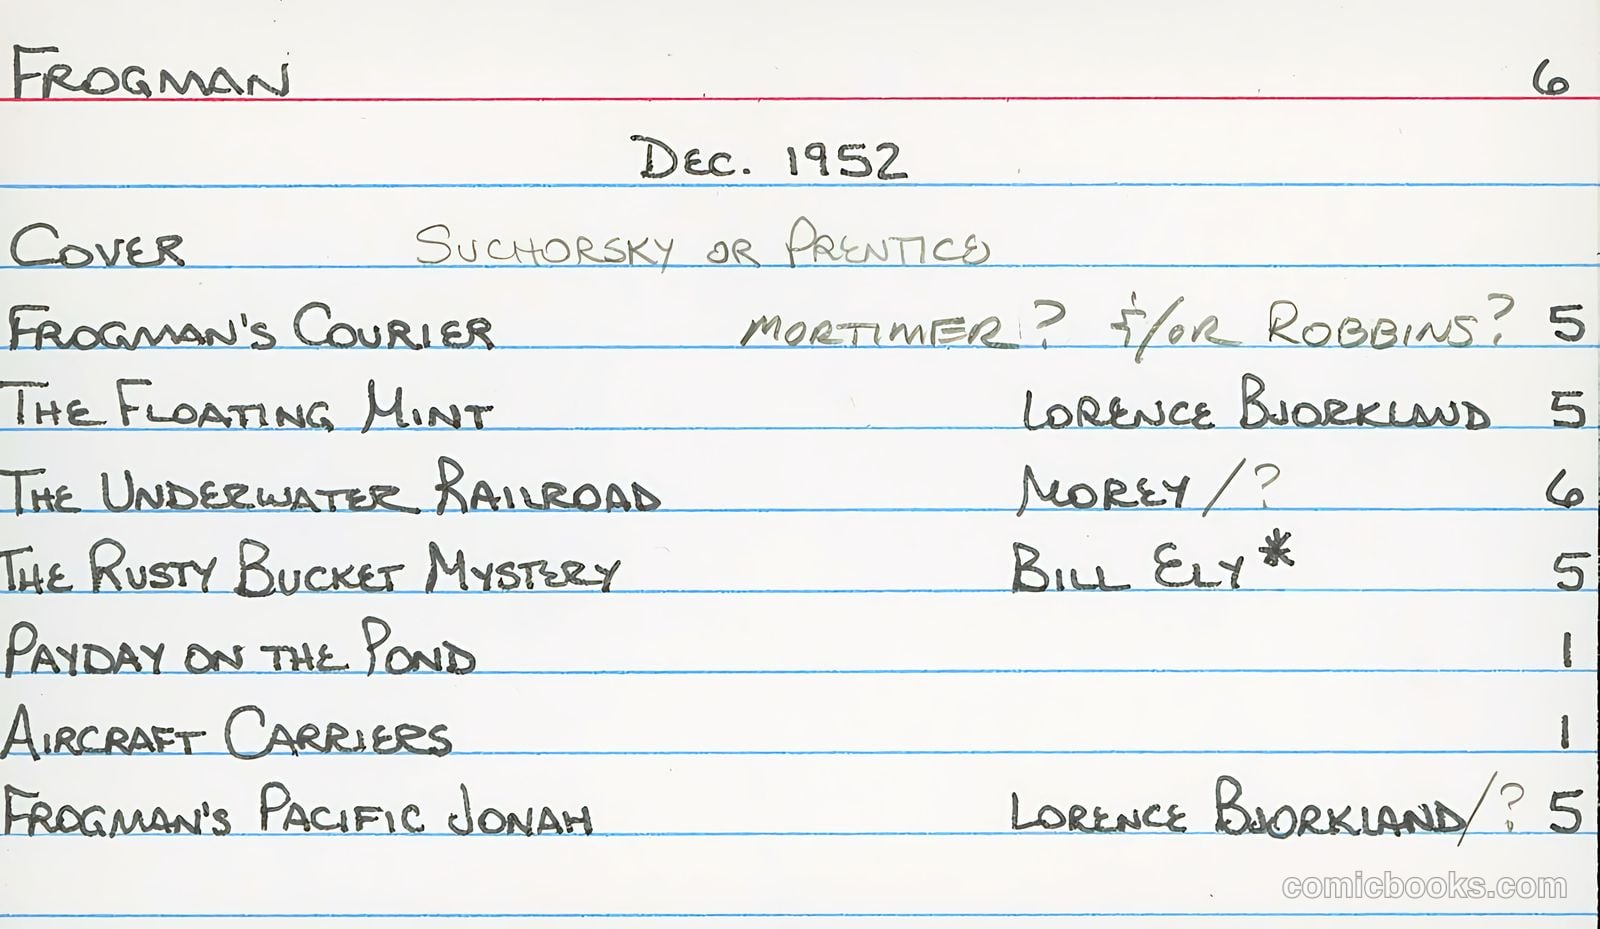 FROGMAN 6
DEC. 1952
COVER SUCHORSKY OR PRENTICE
FROGMAN'S COURIER MORTIMER? &/OR ROBBINS? 5
THE FLOATING MINT LORENCE BJORKLUND 5
THE UNDERWATER RAILROAD MOREY/? 6
THE RUSTY BUCKET MYSTERY BILL ELY* 5
PAYDAY ON THE POND 1
AIRCRAFT CARRIERS 1
FROGMAN'S PACIFIC JONAH LORENCE BJORKLAND/? 5
comicbooks.com